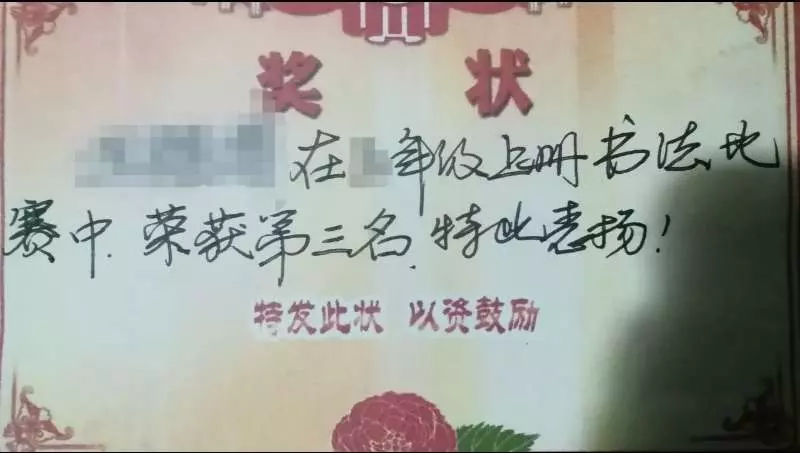 奖状
在 年级上册书法比
赛中. 荣获第三名. 特此表扬!
特发此状 以资鼓励